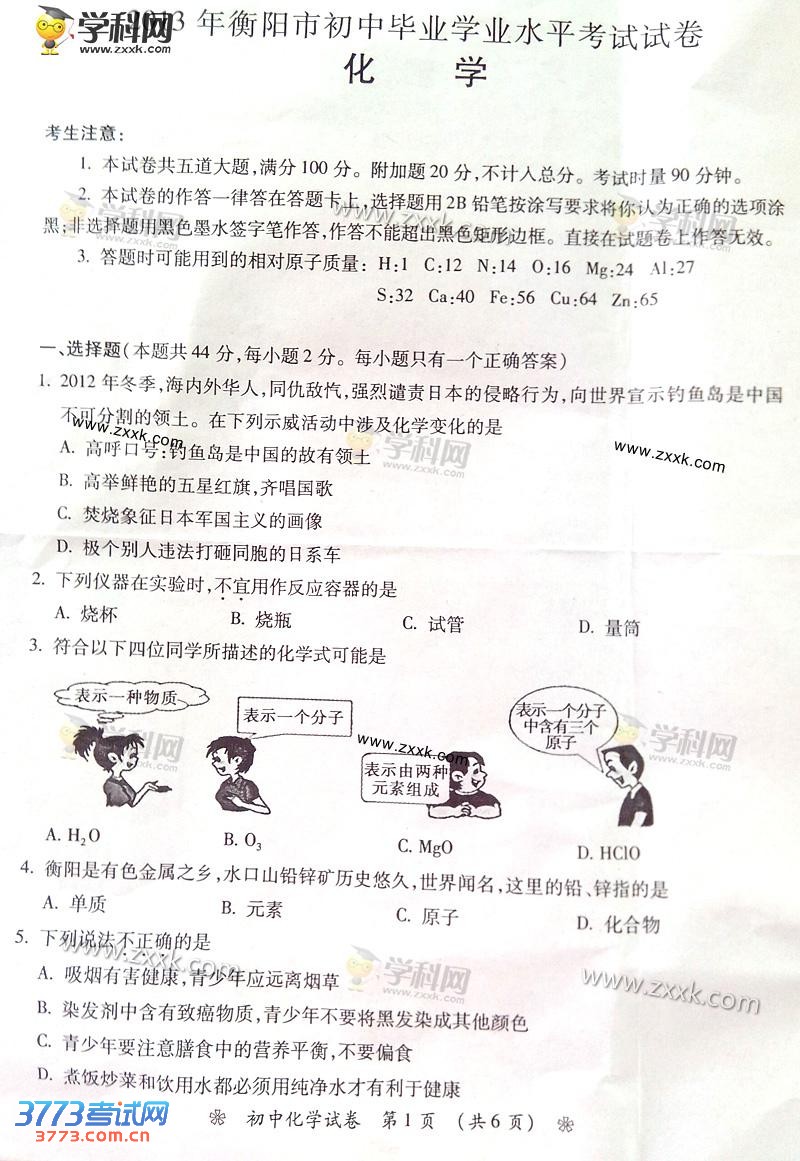 学科网
www.zxxk.com
2013 年衡阳市初中毕业学业水平考试试卷
化 学
考生注意:
1. 本试卷共五道大题,满分100分。附加题20分,不计人总分。考试时量90分钟。
2. 本试卷的作答一律答在答题卡上,选择题用2B铅笔按涂写要求将你认为正确的选项涂
黑;非选择题用黑色墨水签字笔作答,作答不能超出黑色矩形边框。直接在试题卷上作答无效。
3. 答题时可能用到的相对原子质量: H:1 C:12 N:14 O:16 Mg:24 Al:27
S:32 Ca:40 Fe:56 Cu:64 Zn:65
一、选择题(本题共44分,每小题2分。每小题只有一个正确答案)
1. 2012年冬季,海内外华人,同仇敌忾,强烈谴责日本的侵略行为,向世界宣示钓鱼岛是中国
不可分割的领土。在下列示威活动中涉及化学变化的是
A. 高呼口号:钓鱼岛是中国的故有领土
B. 高举鲜艳的五星红旗,齐唱国歌
C. 焚烧象征日本军国主义的画像
D. 极个别人违法打砸同胞的日系车
2. 下列仪器在实验时,不宜用作反应容器的是
A. 烧杯 B. 烧瓶 C. 试管 D. 量筒
3. 符合以下四位同学所描述的化学式可能是
表示一种物质
表示一个分子
表示由两种
元素组成
表示一个分子
中含有三个
原子
A. H₂O B. O₃ C. MgO D. HClO
4. 衡阳是有色金属之乡,水口山铅锌矿历史悠久,世界闻名,这里的铅、锌指的是
A. 单质 B. 元素 C. 原子 D. 化合物
5. 下列说法不正确的是
A. 吸烟有害健康,青少年应远离烟草
B. 染发剂中含有致癌物质,青少年不要将黑发染成其他颜色
C. 青少年要注意膳食中的营养平衡,不要偏食
D. 煮饭炒菜和饮用水都必须用纯净水才有利于健康
初中化学试卷 第1页 (共6页)
3773考试网
3773.com.cn